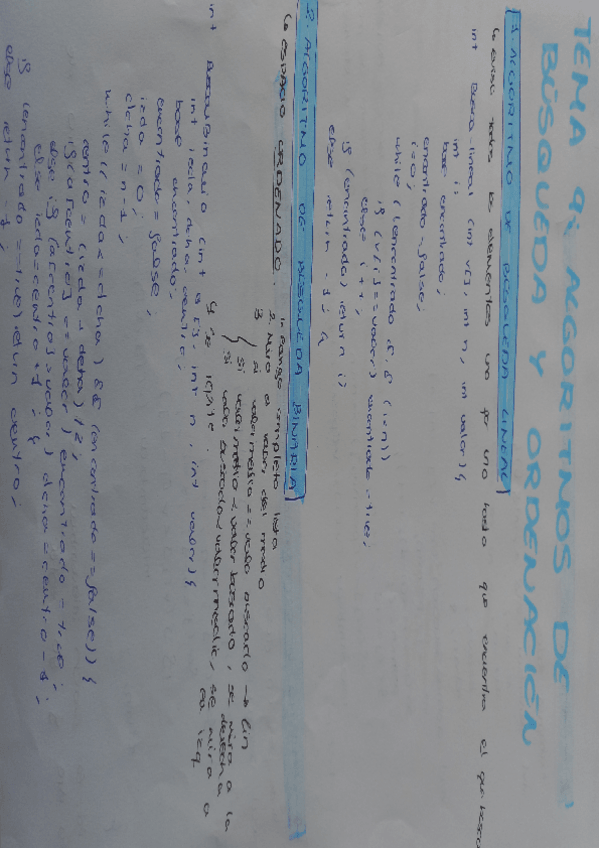 TEMA 9: ALGORITMOS DE
BÚSQUEDA Y ORDENACIÓN
1. ALGORITMO DE BÚSQUEDA LINEAL
todos los elementos uno por uno hasta que encuentra el que busca
int Busca lineal (int v[], int n, int valor) {
int i;
bool encontrado;
encontrado = false;
i=0;
while (!encontrado && (i<n))
if (v[i]==valor) encontrado = true;
else i++;
if (encontrado) return i;
else return -1; }
2. ALGORITMO DE BÚSQUEDA BINARIA
ESPACIO ORDENADO.
1. Rango completo lista
2. Miro el valor del medio
3 si valor medio == valor buscado → fin
si valor medio < valor buscado, se mira a la derecha
si valor buscado < valor medio, se mira a la izq
y se repite.
int BuscaBinaria (int a[], int n, int valor) {
int izda, dcha, centro;
bool encontrado;
encontrado = false;
izda = 0;
dcha = n-1;
while ((izda <= dcha) && (encontrado == false)) {
centro = (izda + dcha) / 2;
if (a[centro] == valor) encontrado = true;
else if (a[centro] > valor) dcha = centro - 1;
else izda = centro + 1; }
if (encontrado == true) return centro;
else return -1;